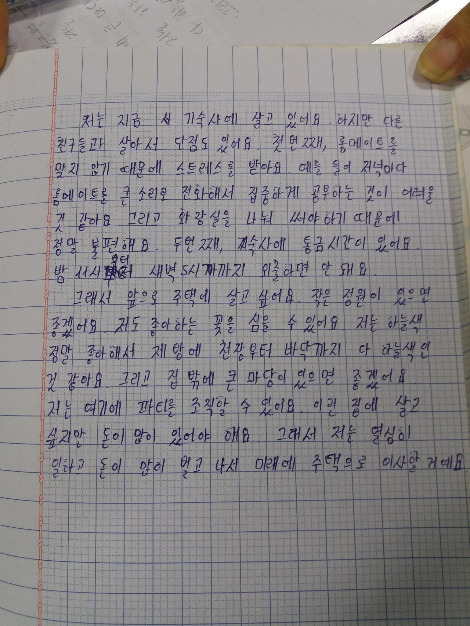 저는 지금 기숙사에 살고 있어요. 하지만 다른
친구들과 살아서 단점도 있어요. 첫번째, 룸메이트를
맞지 않기 때문에 스트레스를 받아요. 예를 들어 저녁마다
룸메이트를 큰 소리로 전화해서 집중하게 공부하는 것이 어려울
것 같아요 그리고 화장실을 나눠 써야 하기 때문에
정말 불편해요. 두번째, 기숙사에 통금시간이 있어요.
밤 부터 새벽 5시까지 외출하면 안 돼요.
그래서 앞으로 주택에 살고 싶어요. 작은 정원이 있으면
좋겠어요. 저도 좋아하는 꽃을 심을 수 있어요 저는 하늘색
정말 좋아해서 제 방에 천장부터 바닥까지 다 하늘색인
것 같아요 그리고 집 밖에 큰 마당이 있으면 좋겠어요
저는 여기에 파티를 조직할 수 있어요. 이런 집에 살고
싶지만 돈이 많이 있어야 해요. 그래서 저는 열심히
일하고 돈이 많이 벌고 나서 미래에 주택으로 이사할 거예요